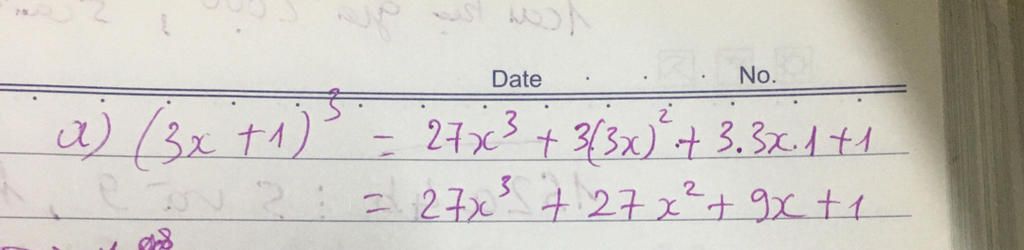 Date . . . No.
a) (3x + 1)³ = 27x³ + 3(3x)² + 3.3x.1 + 1
= 27x³ + 27x² + 9x + 1